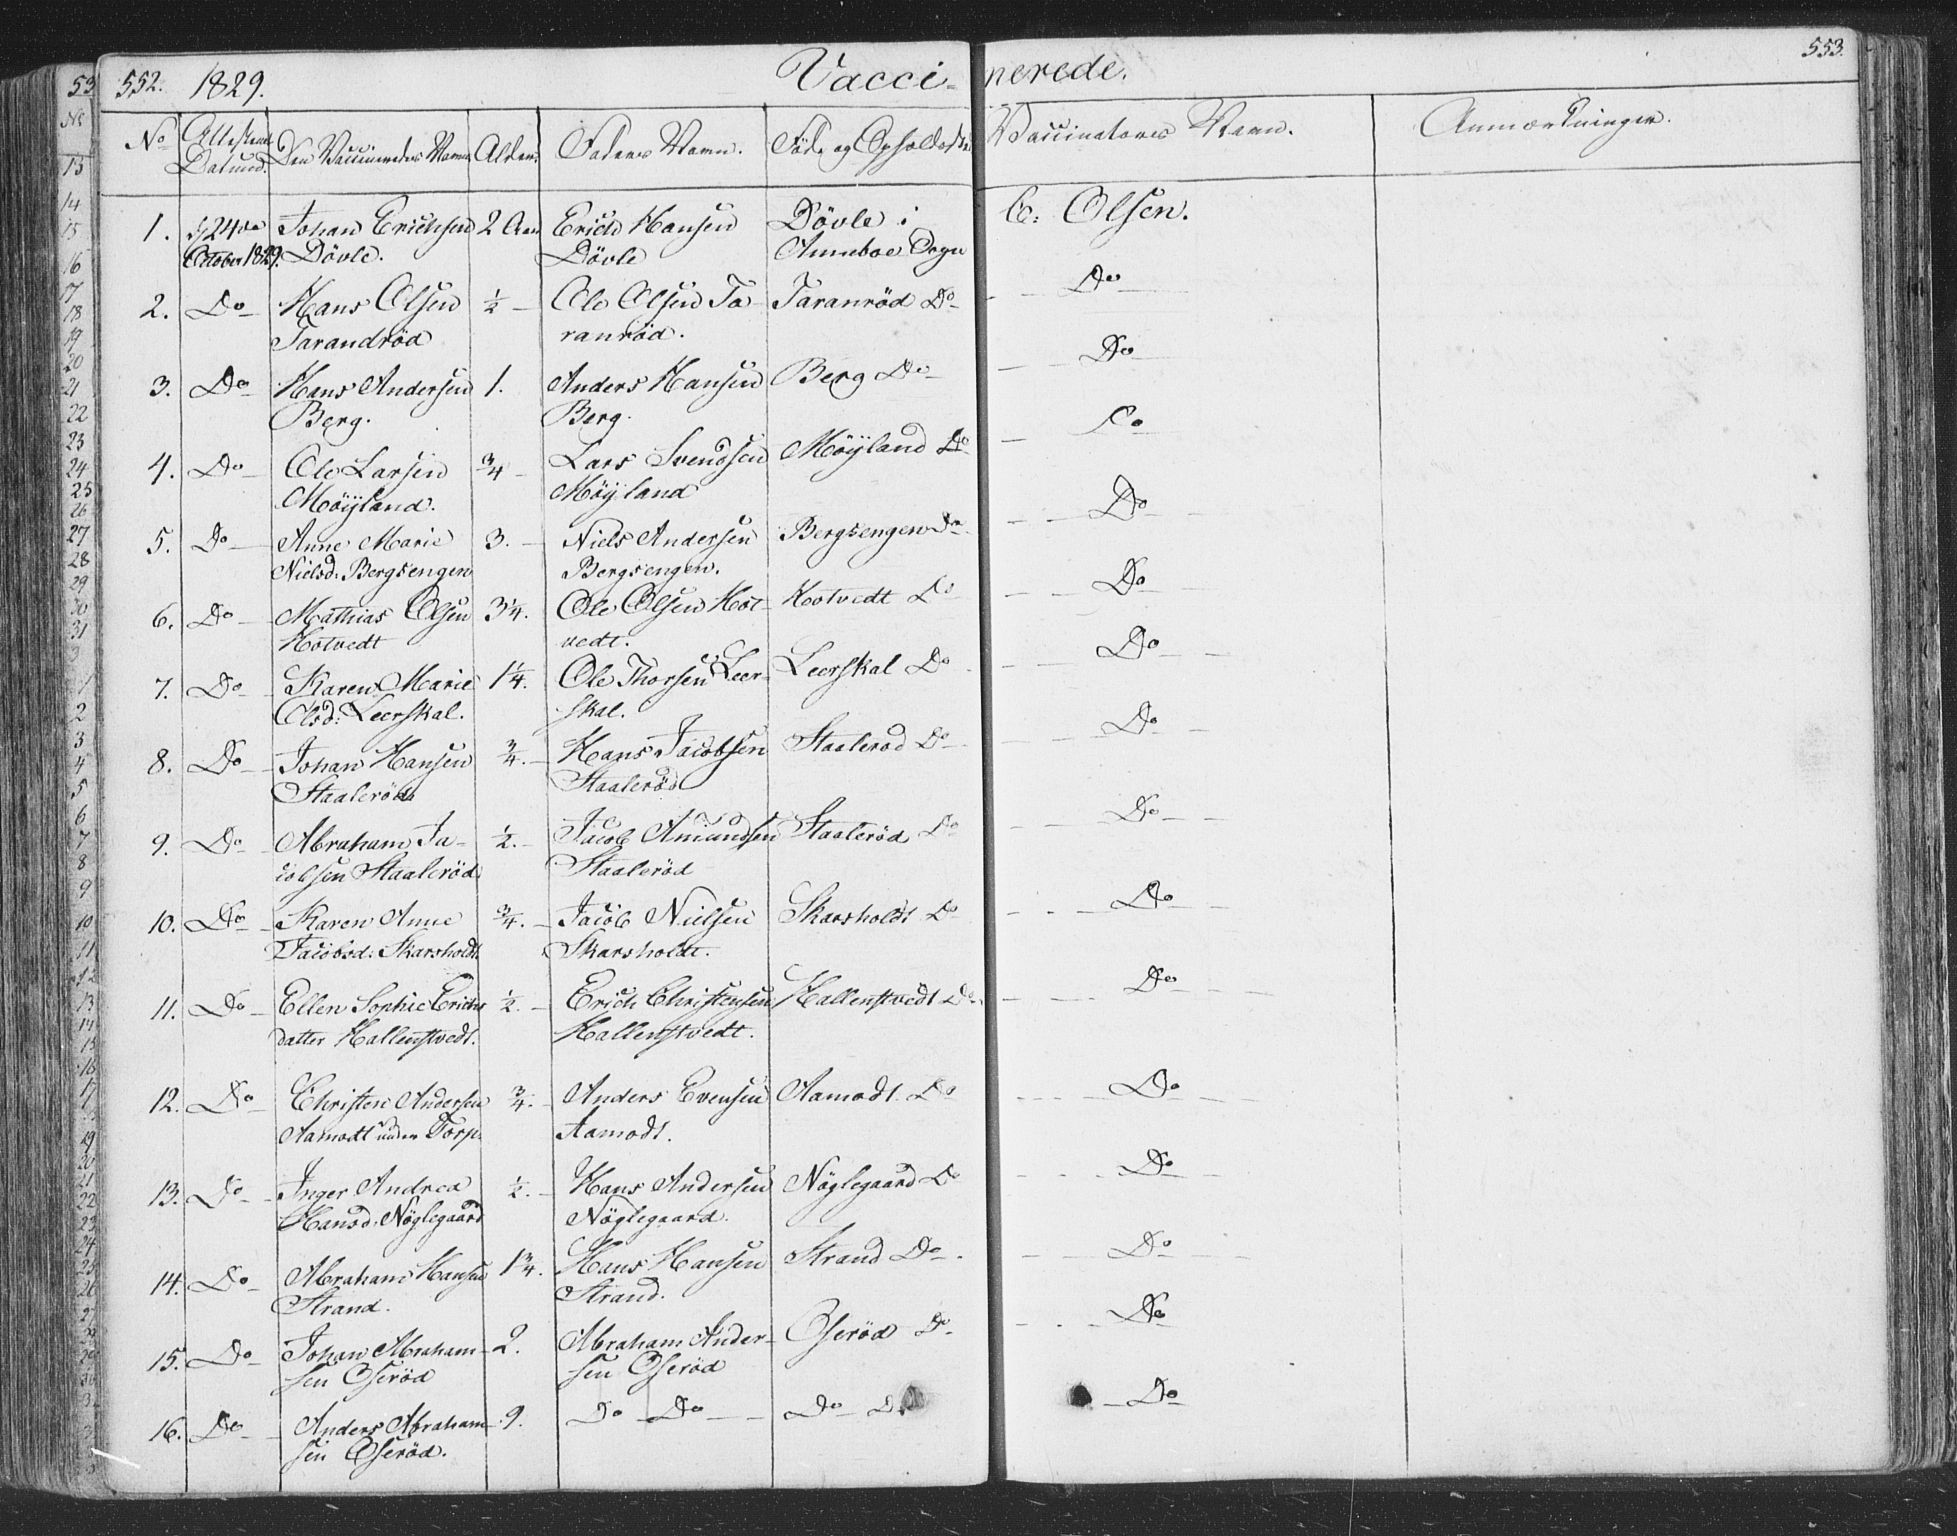 552. 1829. Vacci- nerede. 553.
No Attestens Datum. Den Vaccineredes Navn. Alder. Faders Navn. Föde og Opholdssted Vaccinators Navn. Anmærkninger.
1. 24de Johan Erichsen 2 Aar Erich Hansen Dövle i C: Olsen.
October 1829. Dövle. Dövle Anneboe Sogn
2. Do Hans Olsen ½ Ole Olsen Ta- Taranröd Do Do
Tarandröd ranröd.
3. Do Hans Andersen 1. Anders Hansen Berg Do Do
Berg. Berg.
4. Do Ole Larsen ¾ Lars Svendsen Möÿland Do Do
Möÿland. Möÿland
5. Do Anne Marie 3. Niels Andersen Bergsengen Do Do
Nielsd: Bergsengen Bergsengen.
6. Do Mathias Olsen 3¼. Ole Olsen Hot- Hotvedt Do Do
Hotvedt vedt.
7. Do Karen Marie 1¼. Ole Thorsen Leer- Leerskal Do Do
Olsd: Leerskal. skal.
8. Do Johan Hansen ¾. Hans Jacobsen Staaleröd Do Do
Staaleröd Staaleröd
9. Do Abraham Ja- ½. Jacob Amundsen Staaleröd Do Do
cobsen Staaleröd Staaleröd
10. Do Karen Anne ¾. Jacob Nielsen Skarsholdt Do Do
Jacobsd: Skarsholdt. Skarsholdt.
11. Do Ellen Sophie Erichs ½. Erich Christensen Hallenstvedt Do Do
datter Hallenstvedt. Hallenstvedt.
12. Do Christen Andersen ¾. Anders Evensen Aamodt. Do Do
Aamodt under Torp. Aamodt.
13. Do Inger Andrea ½. Hans Andersen Nöglegaard Do Do
Hansd: Nöglegaard Nöglegaard.
14. Do Abraham Hansen 1¾. Hans Hansen Strand Do Do
Strand. Strand.
15. Do Johan Abraham- 2. Abraham Ander- Oseröd Do Do
sen Oseröd sen Oseröd
16. Do Anders Abraham- 9. Do Do Do Do Do
sen Oseröd.